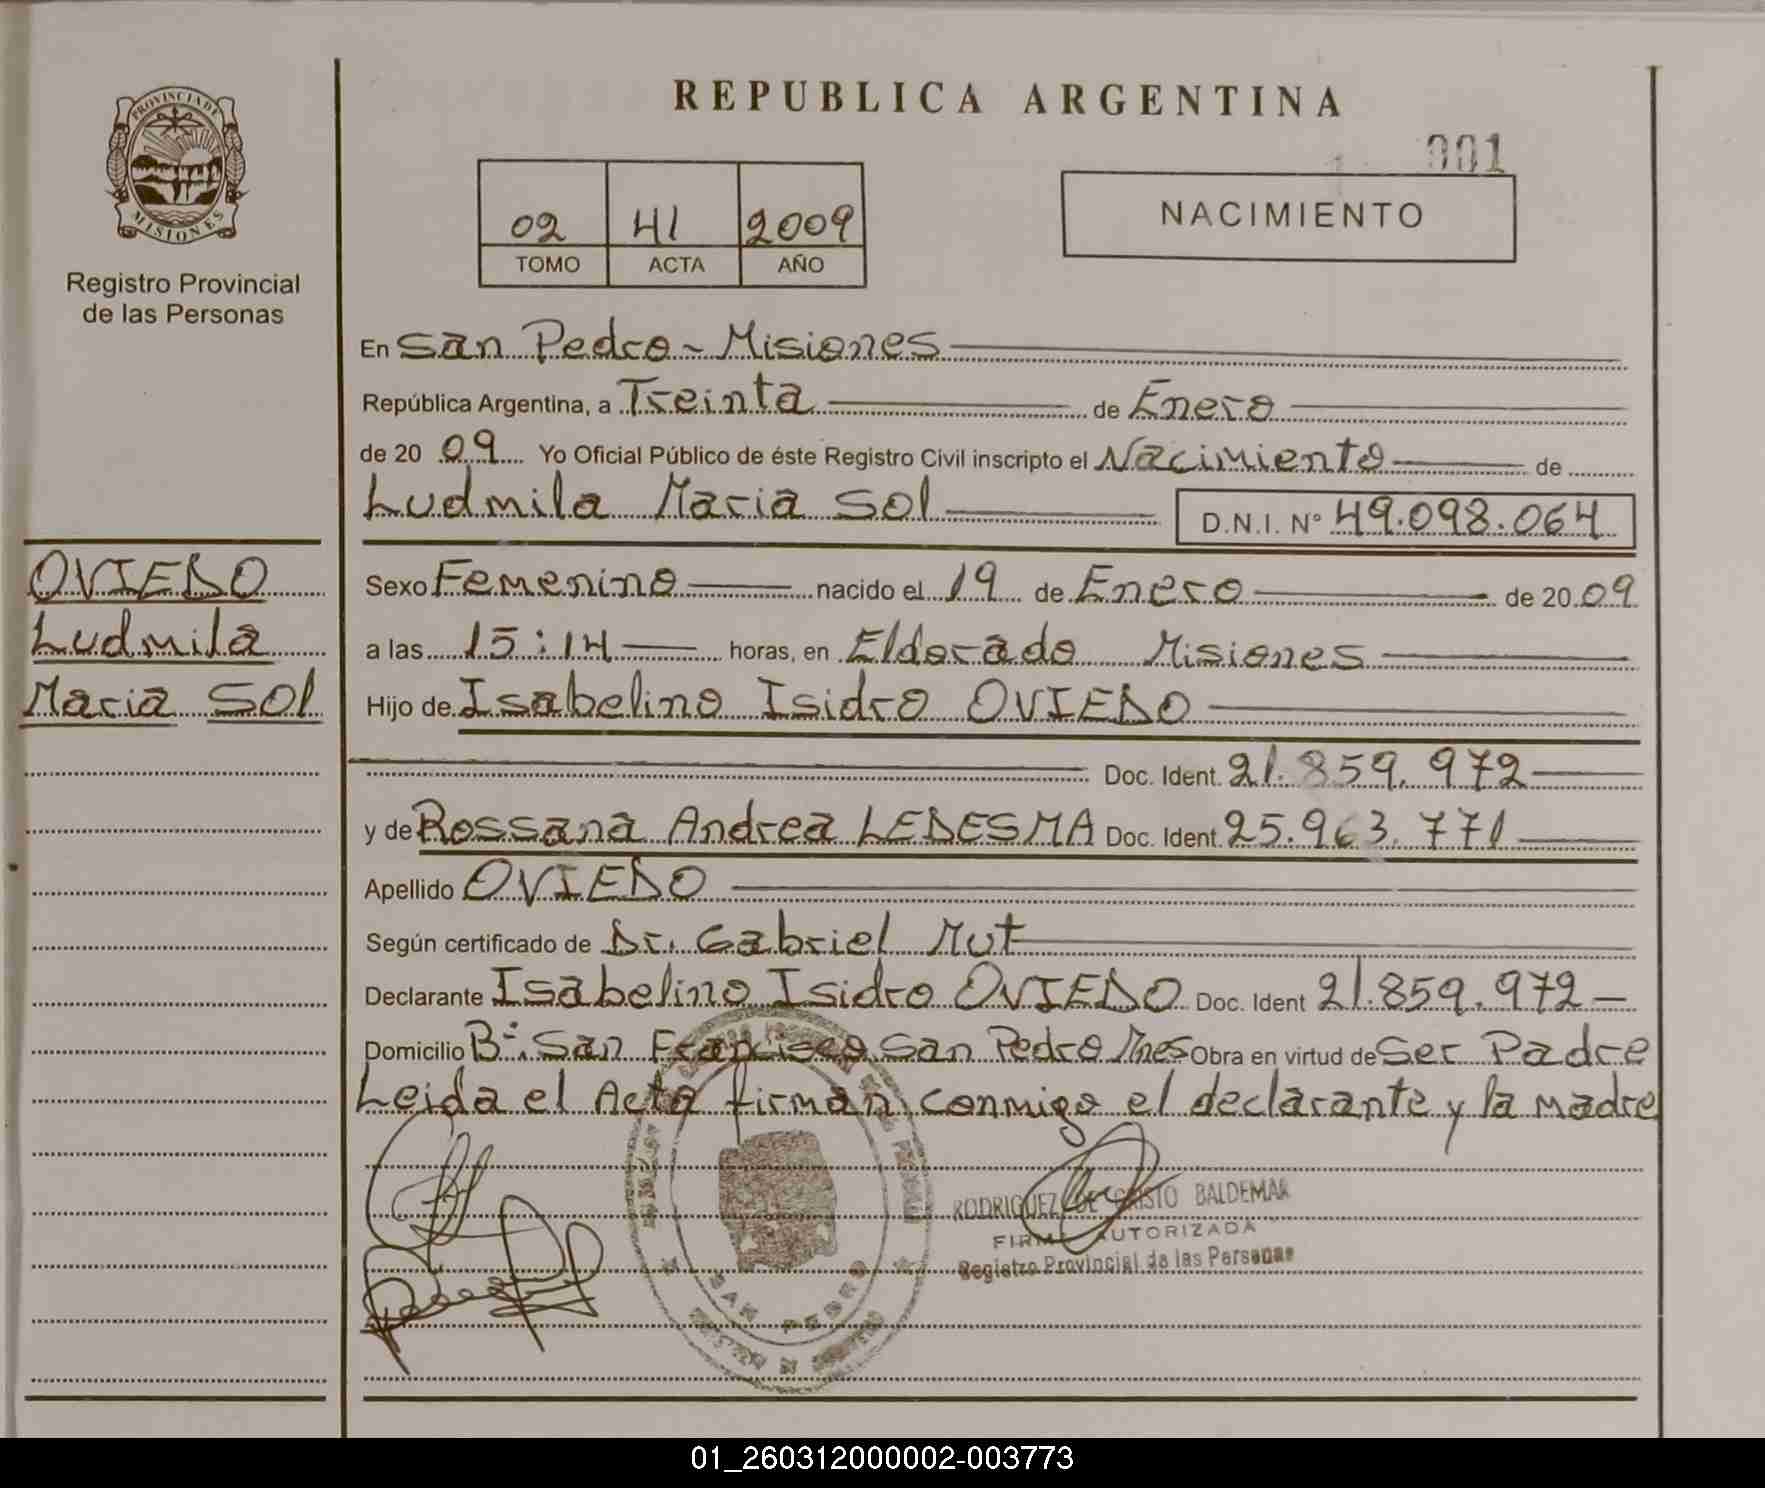 REPUBLICA ARGENTINA
001
PROVINCIA DE
MISIONES
Registro Provincial
de las Personas
02 41 2009
TOMO ACTA AÑO
NACIMIENTO
En San Pedro - Misiones
República Argentina, a Treinta de Enero
de 20 09 Yo Oficial Público de éste Registro Civil inscripto el Nacimiento de
Ludmila Maria Sol D.N.I. N° 49.098.064
OVIEDO
Ludmila
Maria Sol
Sexo Femenino nacido el 19 de Enero de 20 09
a las 15:14 horas, en Eldorado Misiones
Hijo de Isabelino Isidro OVIEDO
Doc. Ident. 21.859.972
y de Rossana Andrea LEDESMA Doc. Ident. 25.963.771
Apellido OVIEDO
Según certificado de Dr. Gabriel Mut
Declarante Isabelino Isidro OVIEDO Doc. Ident 21.859.972
Domicilio B°: San Francisco San Pedro Mnes Obra en virtud de Ser Padre
Leida el Acta firman conmigo el declarante y la madre
RODRIGUEZ DE CRISTO BALDEMAR
FIRMA AUTORIZADA
Registro Provincial de las Personas
SAN PEDRO
01_260312000002-003773